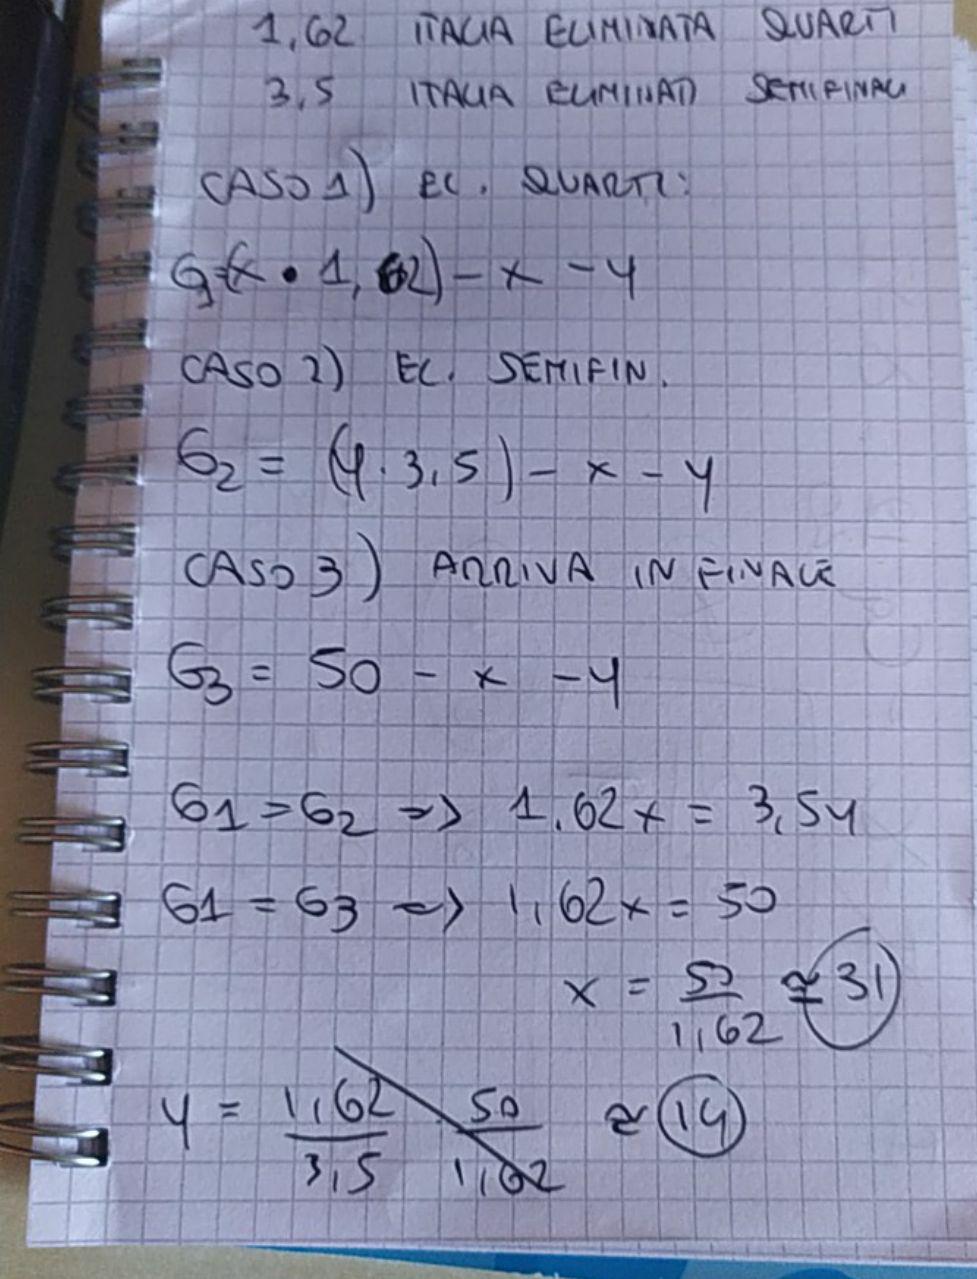 1,62 ITALIA ELIMINATA QUARTI
3,5 ITALIA ELIMINATA SEMIFINALI
CASO 1) EL. QUARTI:
G1=(x • 1,62) - x - y
CASO 2) EL. SEMIFIN.
G2 = (y · 3,5) - x - y
CASO 3) ARRIVA IN FINALE
G3 = 50 - x - y
G1 = G2 => 1,62x = 3,5y
G1 = G3 => 1,62x = 50
x = 50/1,62 ≅ 31
y = 1,62/3,5 50/1,62 ≅ 14